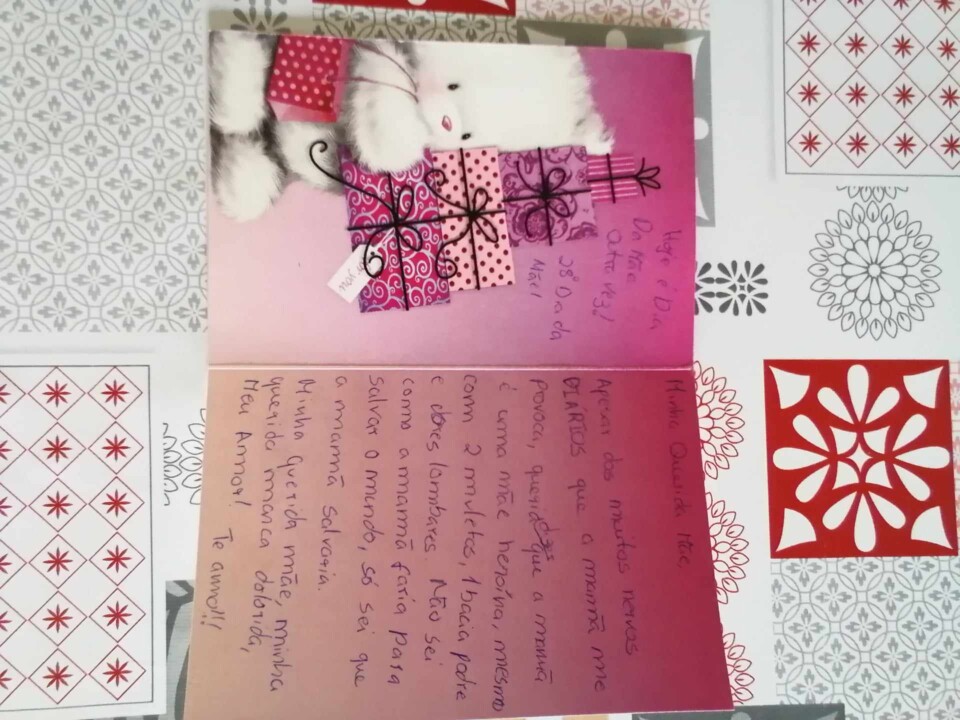 Hoje é Dia
Da Mãe
Outra vez!
28º Dia da
Mãe!
Minha Querida Mãe,
Apesar dos muitos nervos
DIÁRIOS que a mamã me
provoca, que a mamã
é uma mãe heroína, mesmo
com 2 muletas, 1 bacia podre
e dores lombares. Não sei
como a mamã faria para
salvar o mundo, só sei que
a mamã salvaria.
Minha querida mãe, minha
querida manca dolorida,
Meu Ammor! Te ammo!!!